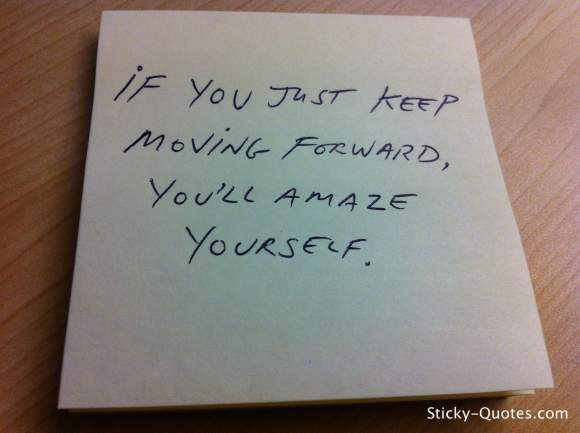 iF YOU JUST KEEP
MOViNG FORWARD,
YOU'LL AMAZE
YOURSELF.
Sticky-Quotes.com